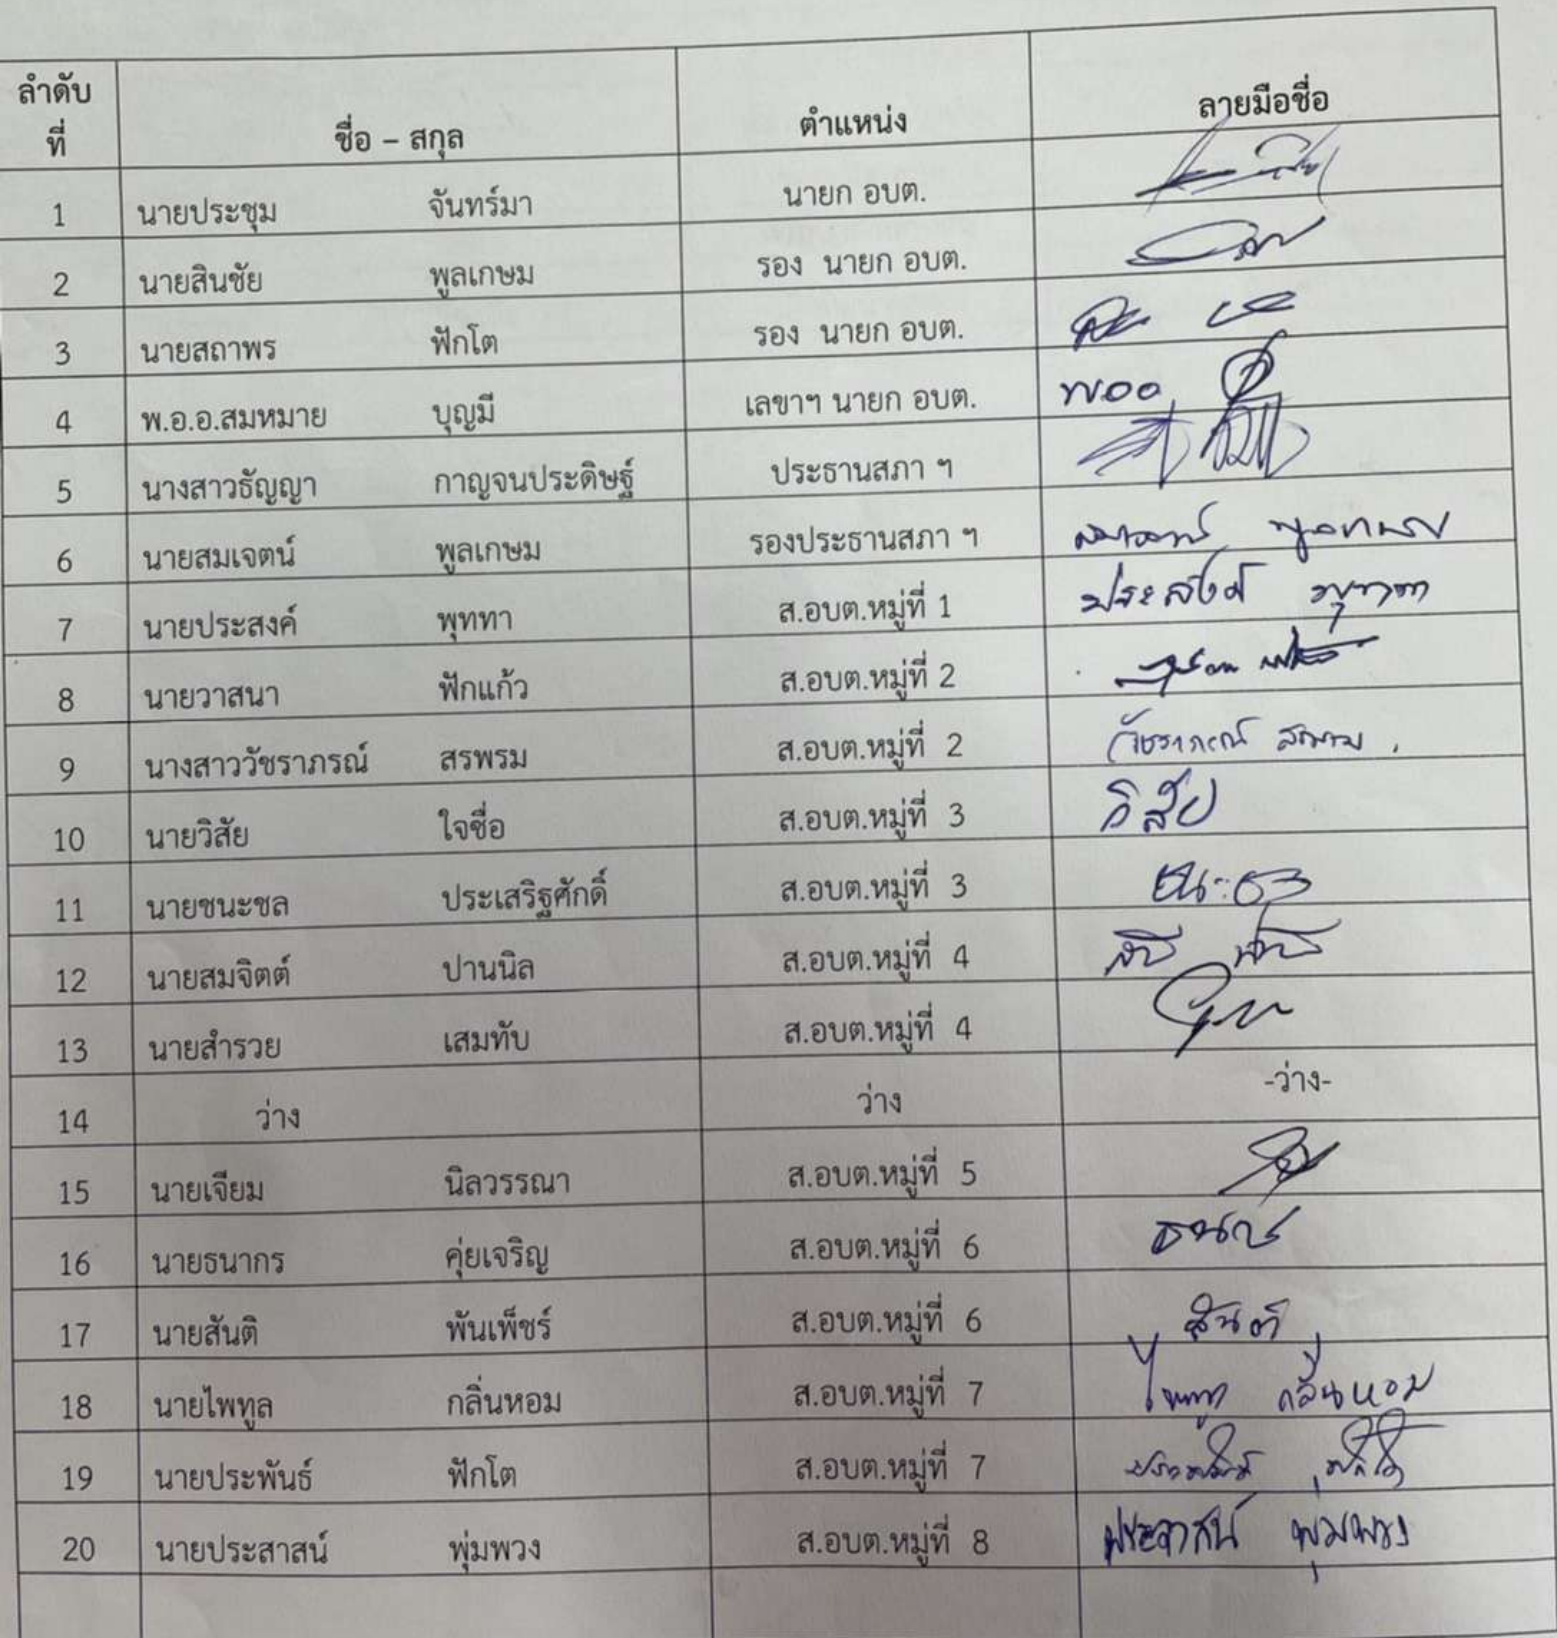 ลำดับที่ ชื่อ – สกุล ตำแหน่ง ลายมือชื่อ
1 นายประชุม จันทร์มา นายก อบต.
2 นายสินชัย พูลเกษม รอง นายก อบต.
3 นายสถาพร ฟักโต รอง นายก อบต.
4 พ.อ.อ.สมหมาย บุญมี เลขาฯ นายก อบต. พออ
5 นางสาวธัญญา กาญจนประดิษฐ์ ประธานสภา ฯ
6 นายสมเจตน์ พูลเกษม รองประธานสภา ฯ
7 นายประสงค์ พุททา ส.อบต.หมู่ที่ 1 ประสงค์ พุททา
8 นายวาสนา ฟักแก้ว ส.อบต.หมู่ที่ 2
9 นางสาววัชราภรณ์ สรพรม ส.อบต.หมู่ที่ 2 วัชราภรณ์
10 นายวิสัย ใจซื่อ ส.อบต.หมู่ที่ 3 วิสัย
11 นายชนะชล ประเสริฐศักดิ์ ส.อบต.หมู่ที่ 3
12 นายสมจิตต์ ปานนิล ส.อบต.หมู่ที่ 4
13 นายสำรวย เสมทับ ส.อบต.หมู่ที่ 4
14 ว่าง ว่าง -ว่าง-
15 นายเจียม นิลวรรณา ส.อบต.หมู่ที่ 5
16 นายธนากร คุ่ยเจริญ ส.อบต.หมู่ที่ 6
17 นายสันติ พันเพ็ชร์ ส.อบต.หมู่ที่ 6 สันติ
18 นายไพทูล กลิ่นหอม ส.อบต.หมู่ที่ 7 ไพทูล กลิ่นหอม
19 นายประพันธ์ ฟักโต ส.อบต.หมู่ที่ 7 ประพันธ์ ฟักโต
20 นายประสาสน์ พุ่มพวง ส.อบต.หมู่ที่ 8 ประสาสน์ พุ่มพวง